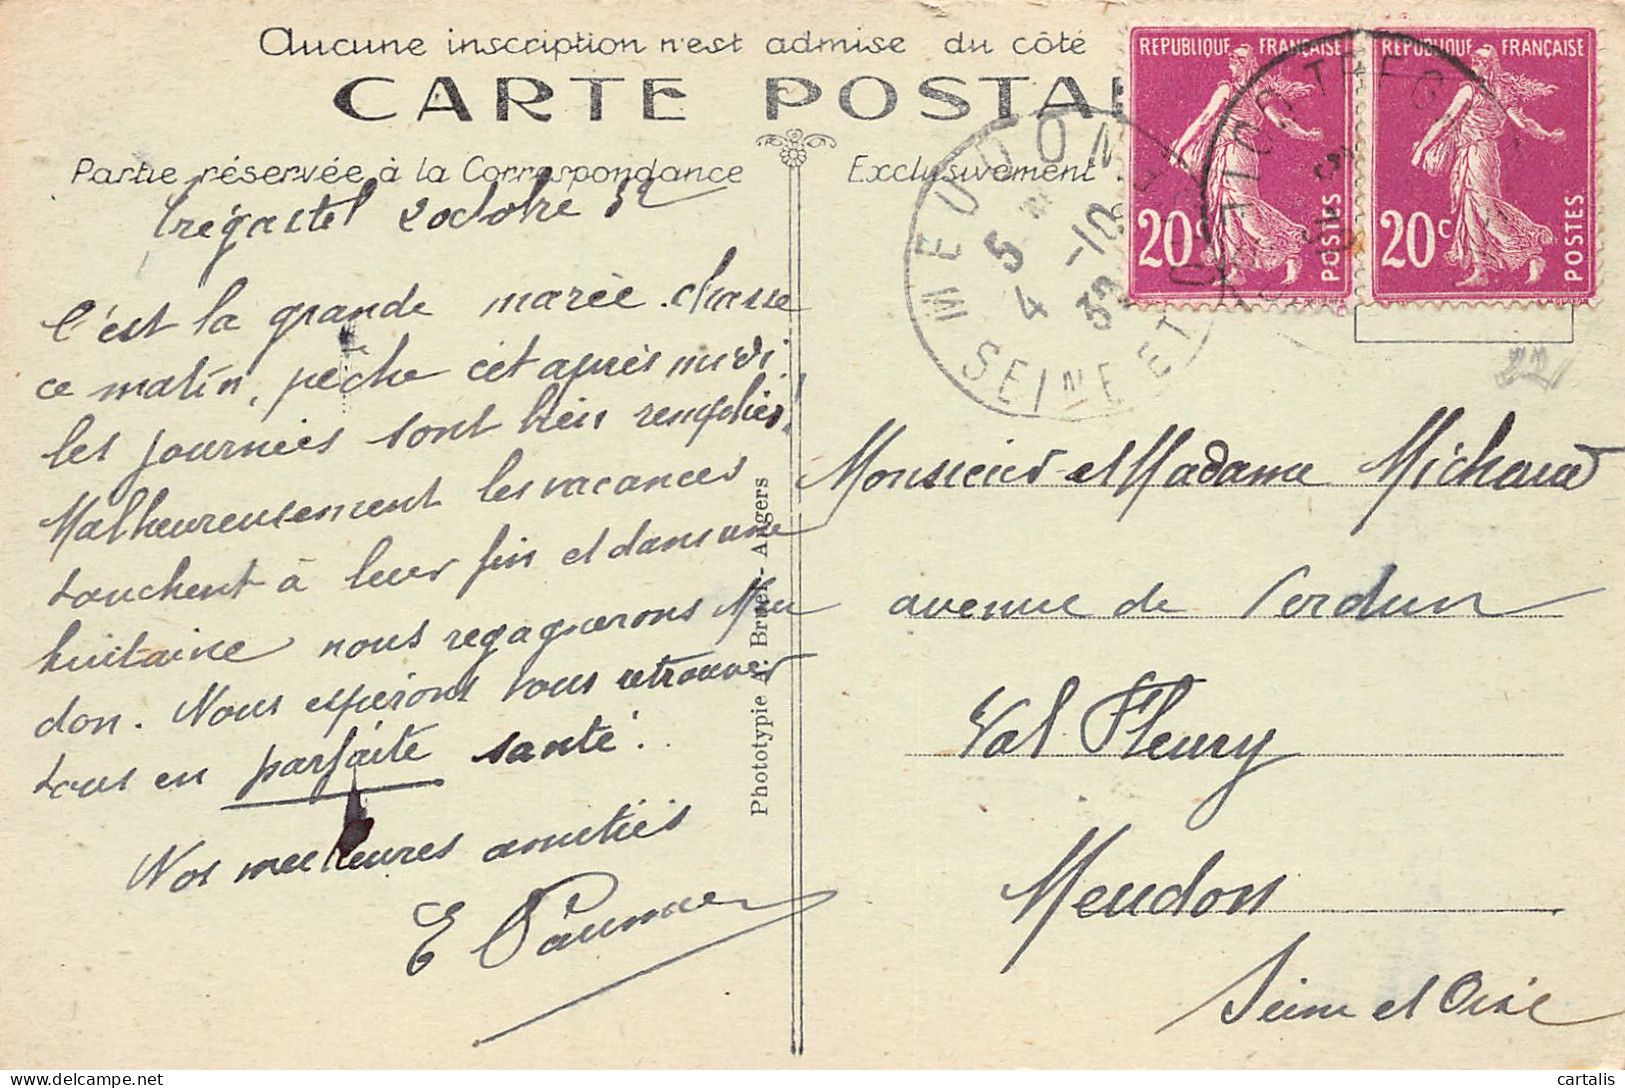 Aucune inscription n'est admise du côté
CARTE POSTAL
Partie réservée à la Correspondance
Exclusivement
Trégastel 2 octobre 32
C'est la grande marée. chasse
ce matin, pêche cet après midi.
les journées sont bien remplies!
Malheureusement les vacances
touchent à leur fin et dans une
huitaine nous regagnerons Meu
don. Nous espérons vous retrouver
tous en parfaite santé.
Nos meilleures amitiés
E
Phototypie A. Bruel - Angers
REPUBLIQUE FRANÇAISE
20c
POSTES
REPUBLIQUE FRANÇAISE
20c
POSTES
MEUDON
5
4 -10
32
SEINE ET O
22
Monsieur et Madame Michaud
avenue de Verdun
Val Fleury
Meudon
Seine et Oise
cartalis